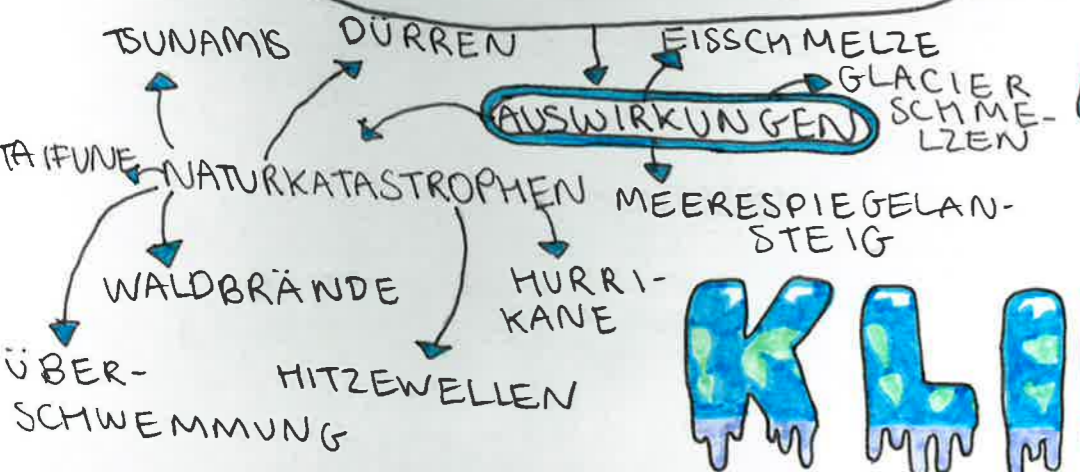 TSUNAMIS
DÜRREN
EISSCHMELZE
GLACIER
SCHME-
LZEN
AUSWIRKUNGEN
TAIFUNE
NATURKATASTROPHEN
MEERESPIEGELAN-
STEIG
WALDBRÄNDE
HURRI-
KANE
ÜBER-
SCHWEMMUNG
HITZEWELLEN
KLI